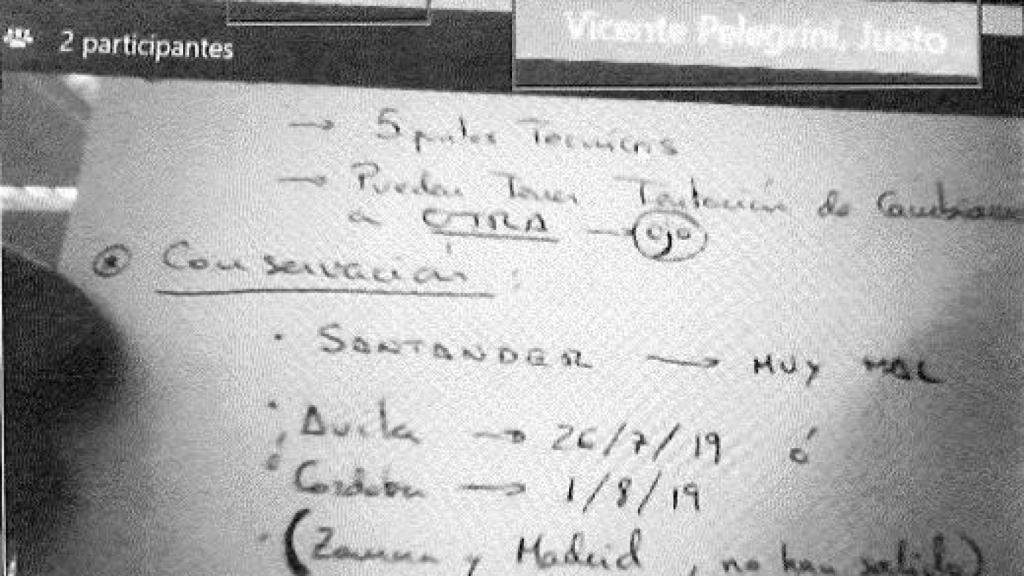 2 participantes
Vicente Pelegrini, Justo
→ 5 puntos Tecnicos
→ Pueden Tener Tentación de Cambiarse
a OTRA — ojo
Conservación:
· SANTANDER → MUY MAL
· Avila → 26/7/19 ó
· Cordoba → 1/8/19
· (Zamora y Madrid, no han salido)